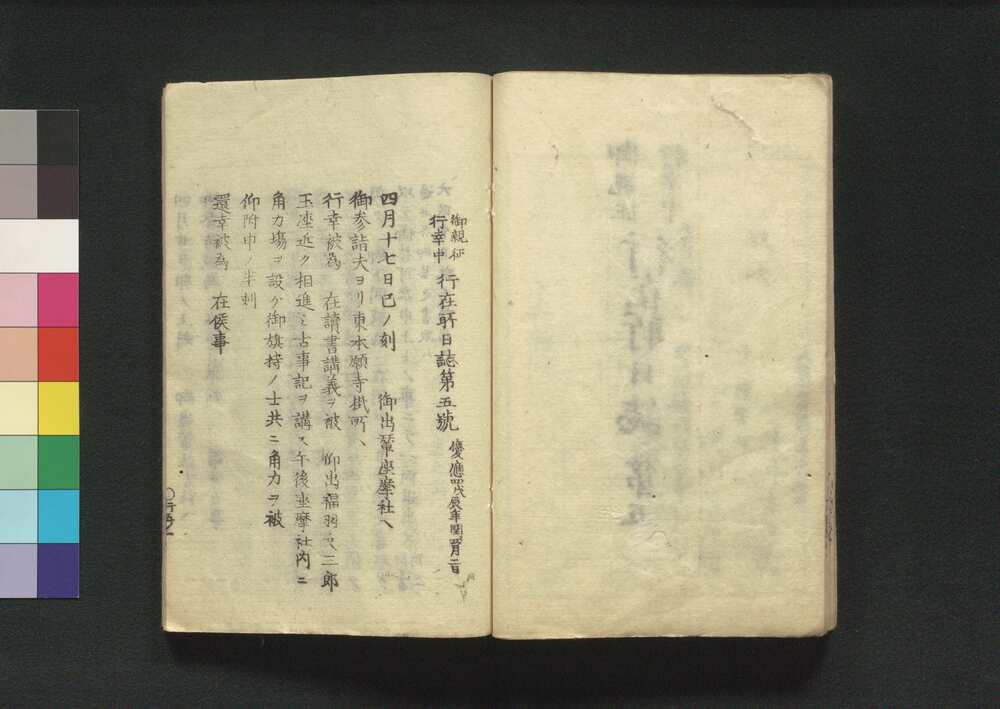 御親征
行幸中
行在所日誌第五號
慶應四戊辰年閏四月二日
四月十七日巳ノ刻 御出輦座摩社ヘ
御参詣夫ヨリ東本願寺掛所ヘ
行幸被為 在讀書講義ヲ被 仰出福羽文三郎
玉座近ク相進ミ古事記ヲ講ス午後坐摩社内ニ
角力塲ヲ設ケ御旗持ノ士共ニ角力ヲ被
仰附申ノ半刻
還幸被為 在候事